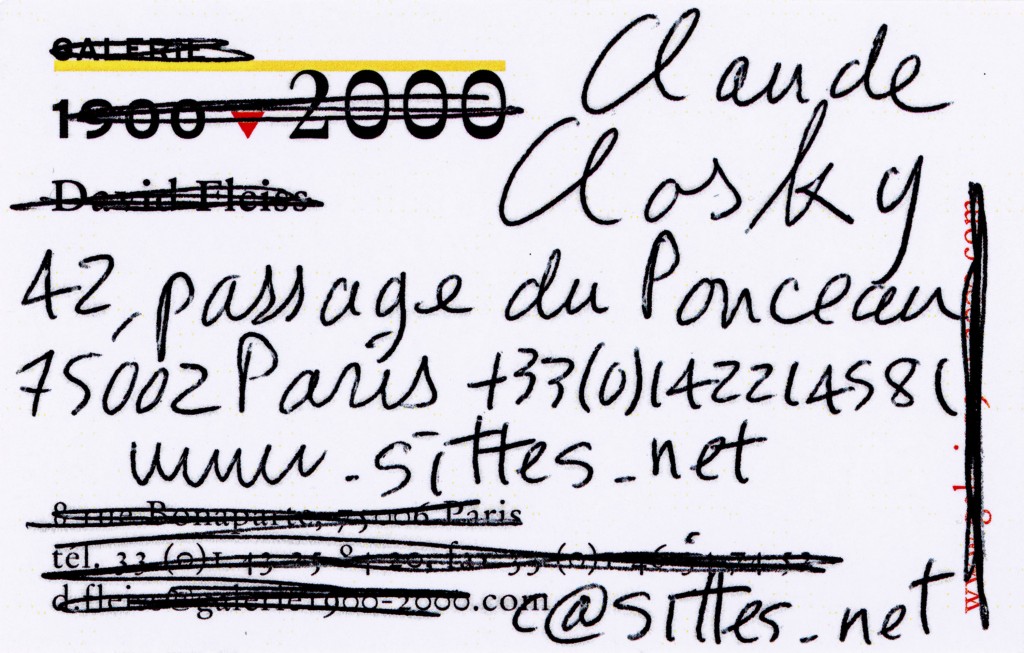 GALERIE
1900 2000
Claude
Closky
David Fleiss
42, passage du Ponceau
75002 Paris +33(0)142214581
www.sittes.net
8 rue Bonaparte, 75006 Paris
tél. 33 (0)1 43 25 84 20, fax 33 (0)1 46 34 74 52
d.fleiss@galerie1900-2000.com
c@sittes.net